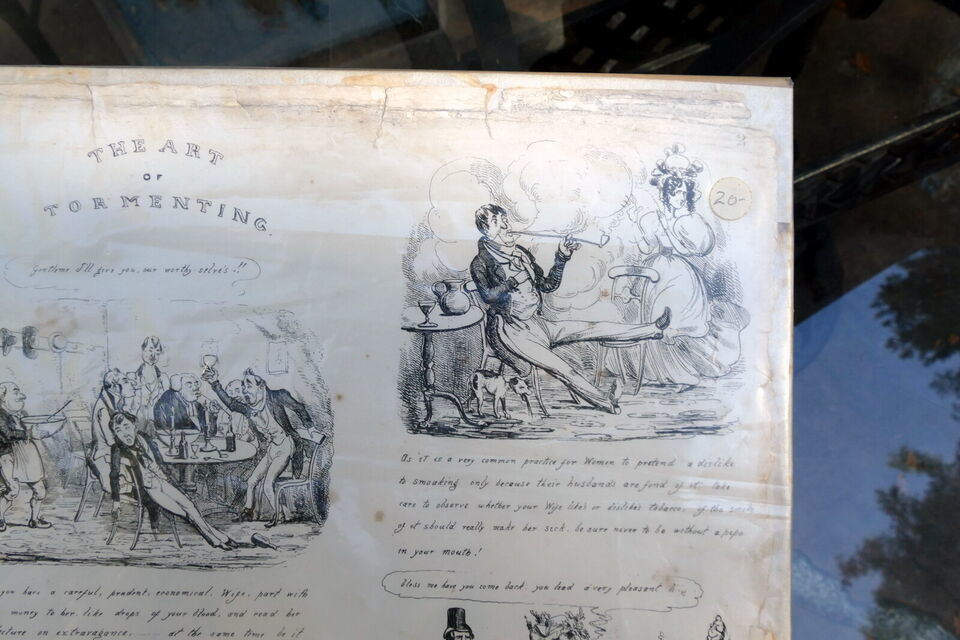 THE ART
OF
TORMENTING.
Gentlemen I'll give you, our worthy selve's.!!
you have a careful, prudent, economical, Wife, part with
money to her like drops of your blood, and read her
lecture on extravagance, at the same time be it
2
20-
As it is a very common practice for Women to pretend a dislike
to smoaking only because their husbands are fond of it take
care to observe whether your Wife like's or dislike's tobacco, if the smoke
of it should really make her sick. be sure never to be without a pipe
in your mouth.!
bless me have you come back. you lead a very pleasant